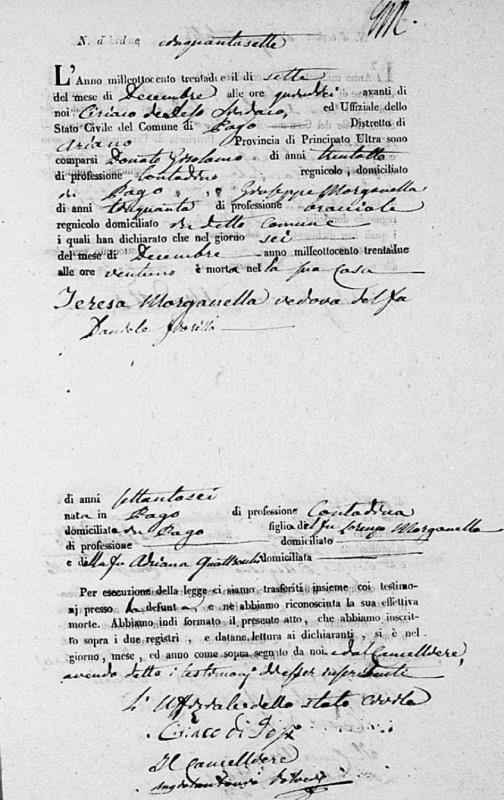 N. d'ordine cinquantasette
L'Anno millottocento trentadue il di sette
del mese di Decembre alle ore quindici avanti di
noi Ciriaco de Jeso Sindaco, ed Uffiziale dello
Stato Civile del Comune di Pago Distretto di
Ariano Provincia di Principato Ultra sono
comparsi Donato Girolamo di anni trentotto
di professione Contadino regnicolo, domiciliato
di Pago e Giuseppe Morganella
di anni cinquanta di professione bracciale
regnicolo domiciliato in detto Comune
i quali han dichiarato che nel giorno sei
del mese di Decembre anno millottocento trentadue
alle ore ventuno è morta nel la sua Casa
Teresa Morganella vedova del fu
Daniele
di anni settantasei
nata in Pago di professione Contadina
domiciliata in Pago figlia del fu Lorenzo Morganella
di professione domiciliato
e della fu Adriana domiciliata
Per esecuzione della legge ci siamo trasferiti insieme coi testimo-
nj presso la defunta, e ne abbiamo riconosciuta la sua effettiva
morte. Abbiamo indi formato il presente atto, che abbiamo inscrit-
to sopra i due registri, e datane lettura ai dichiaranti, si è nel
giorno, mese, ed anno come sopra segnato da noi e dal Cancelliere,
avendo detto i testimonj di esser inscribenti
L'Uffiziale dello stato civile
Ciriaco di Jeso
Il Cancelliere